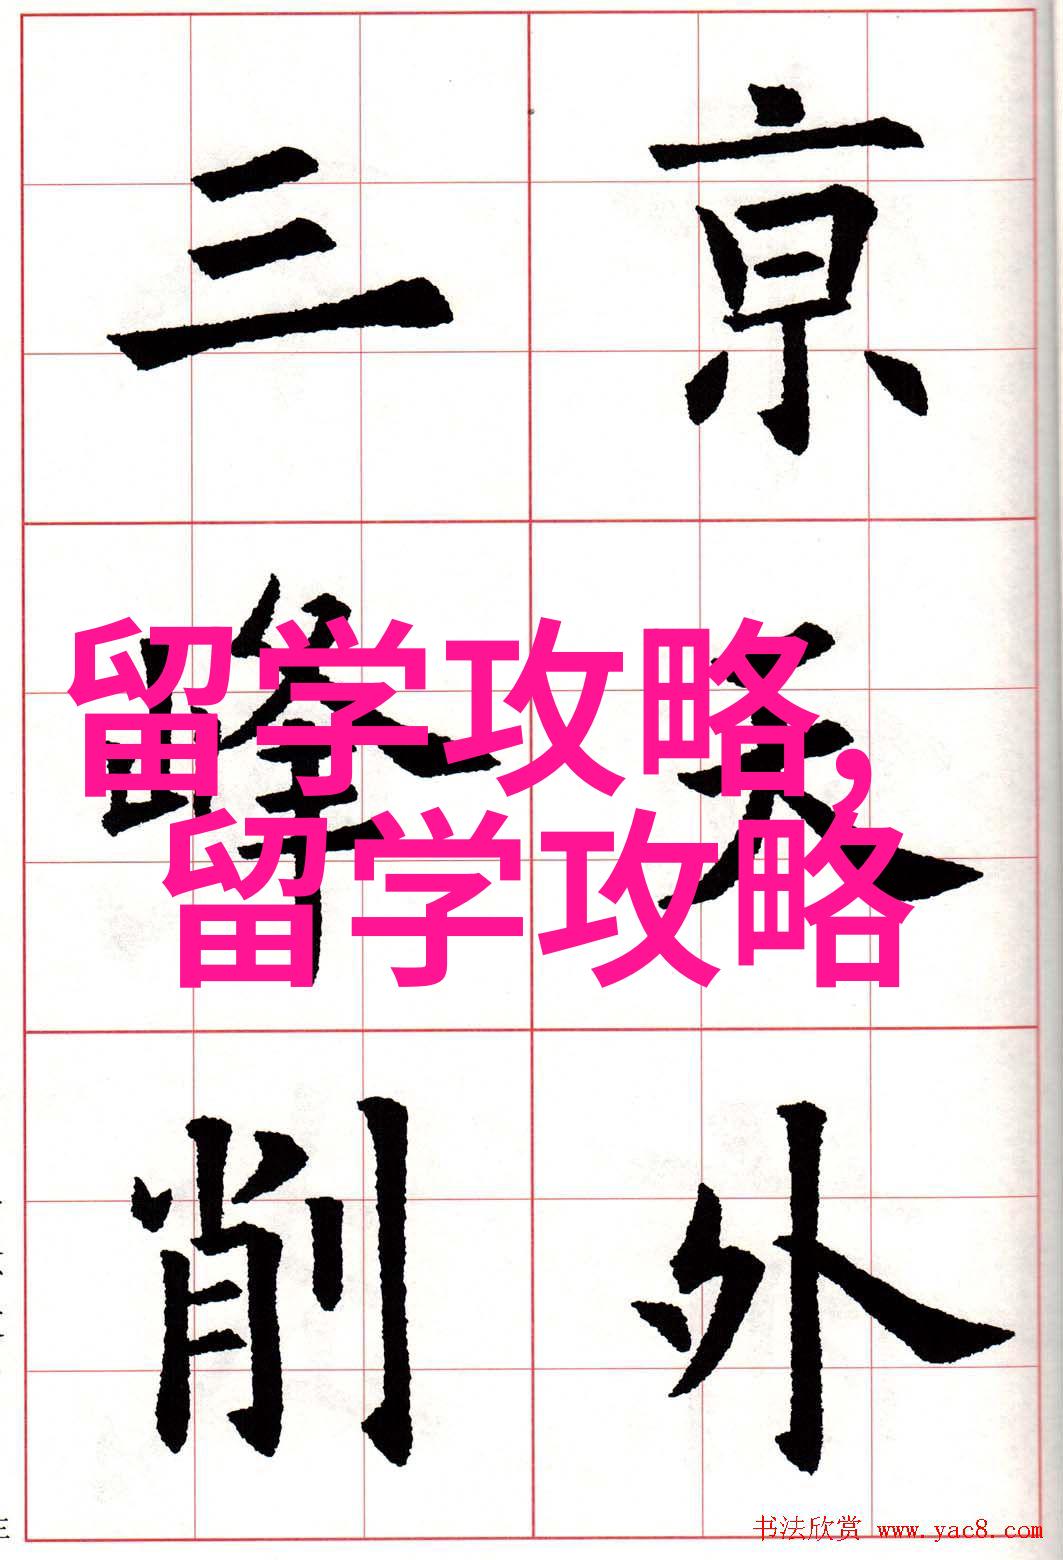 亰天外
三峰削
留学攻略,
留学攻略
书法欣赏 www.yac8.com